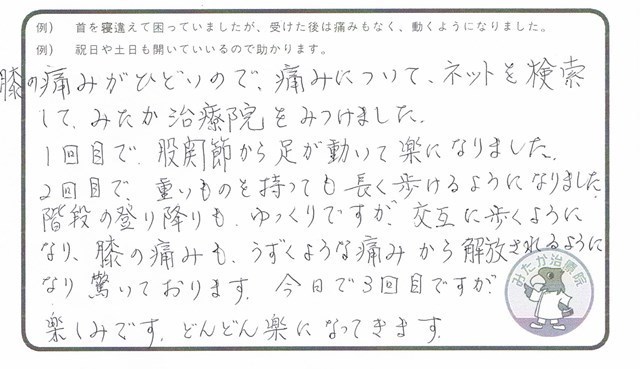 例） 首を寝違えて困っていましたが、受けた後は痛みもなく、動くようになりました。
例） 祝日や土日も開いていいるので助かります。
膝の痛みがひどいので、痛みについて、ネットを検索
して、みたか治療院をみつけました。
1回目で、股関節から足が動いて楽になりました。
2回目で、重いものを持っても長く歩けるようになりました。
階段の登り降りも、ゆっくりですが、交互に歩くように
なり、膝の痛みも、うずくような痛みから解放されるように
なり驚いております。今日で3回目ですが
楽しみです。どんどん楽になってきます。
みたか治療院